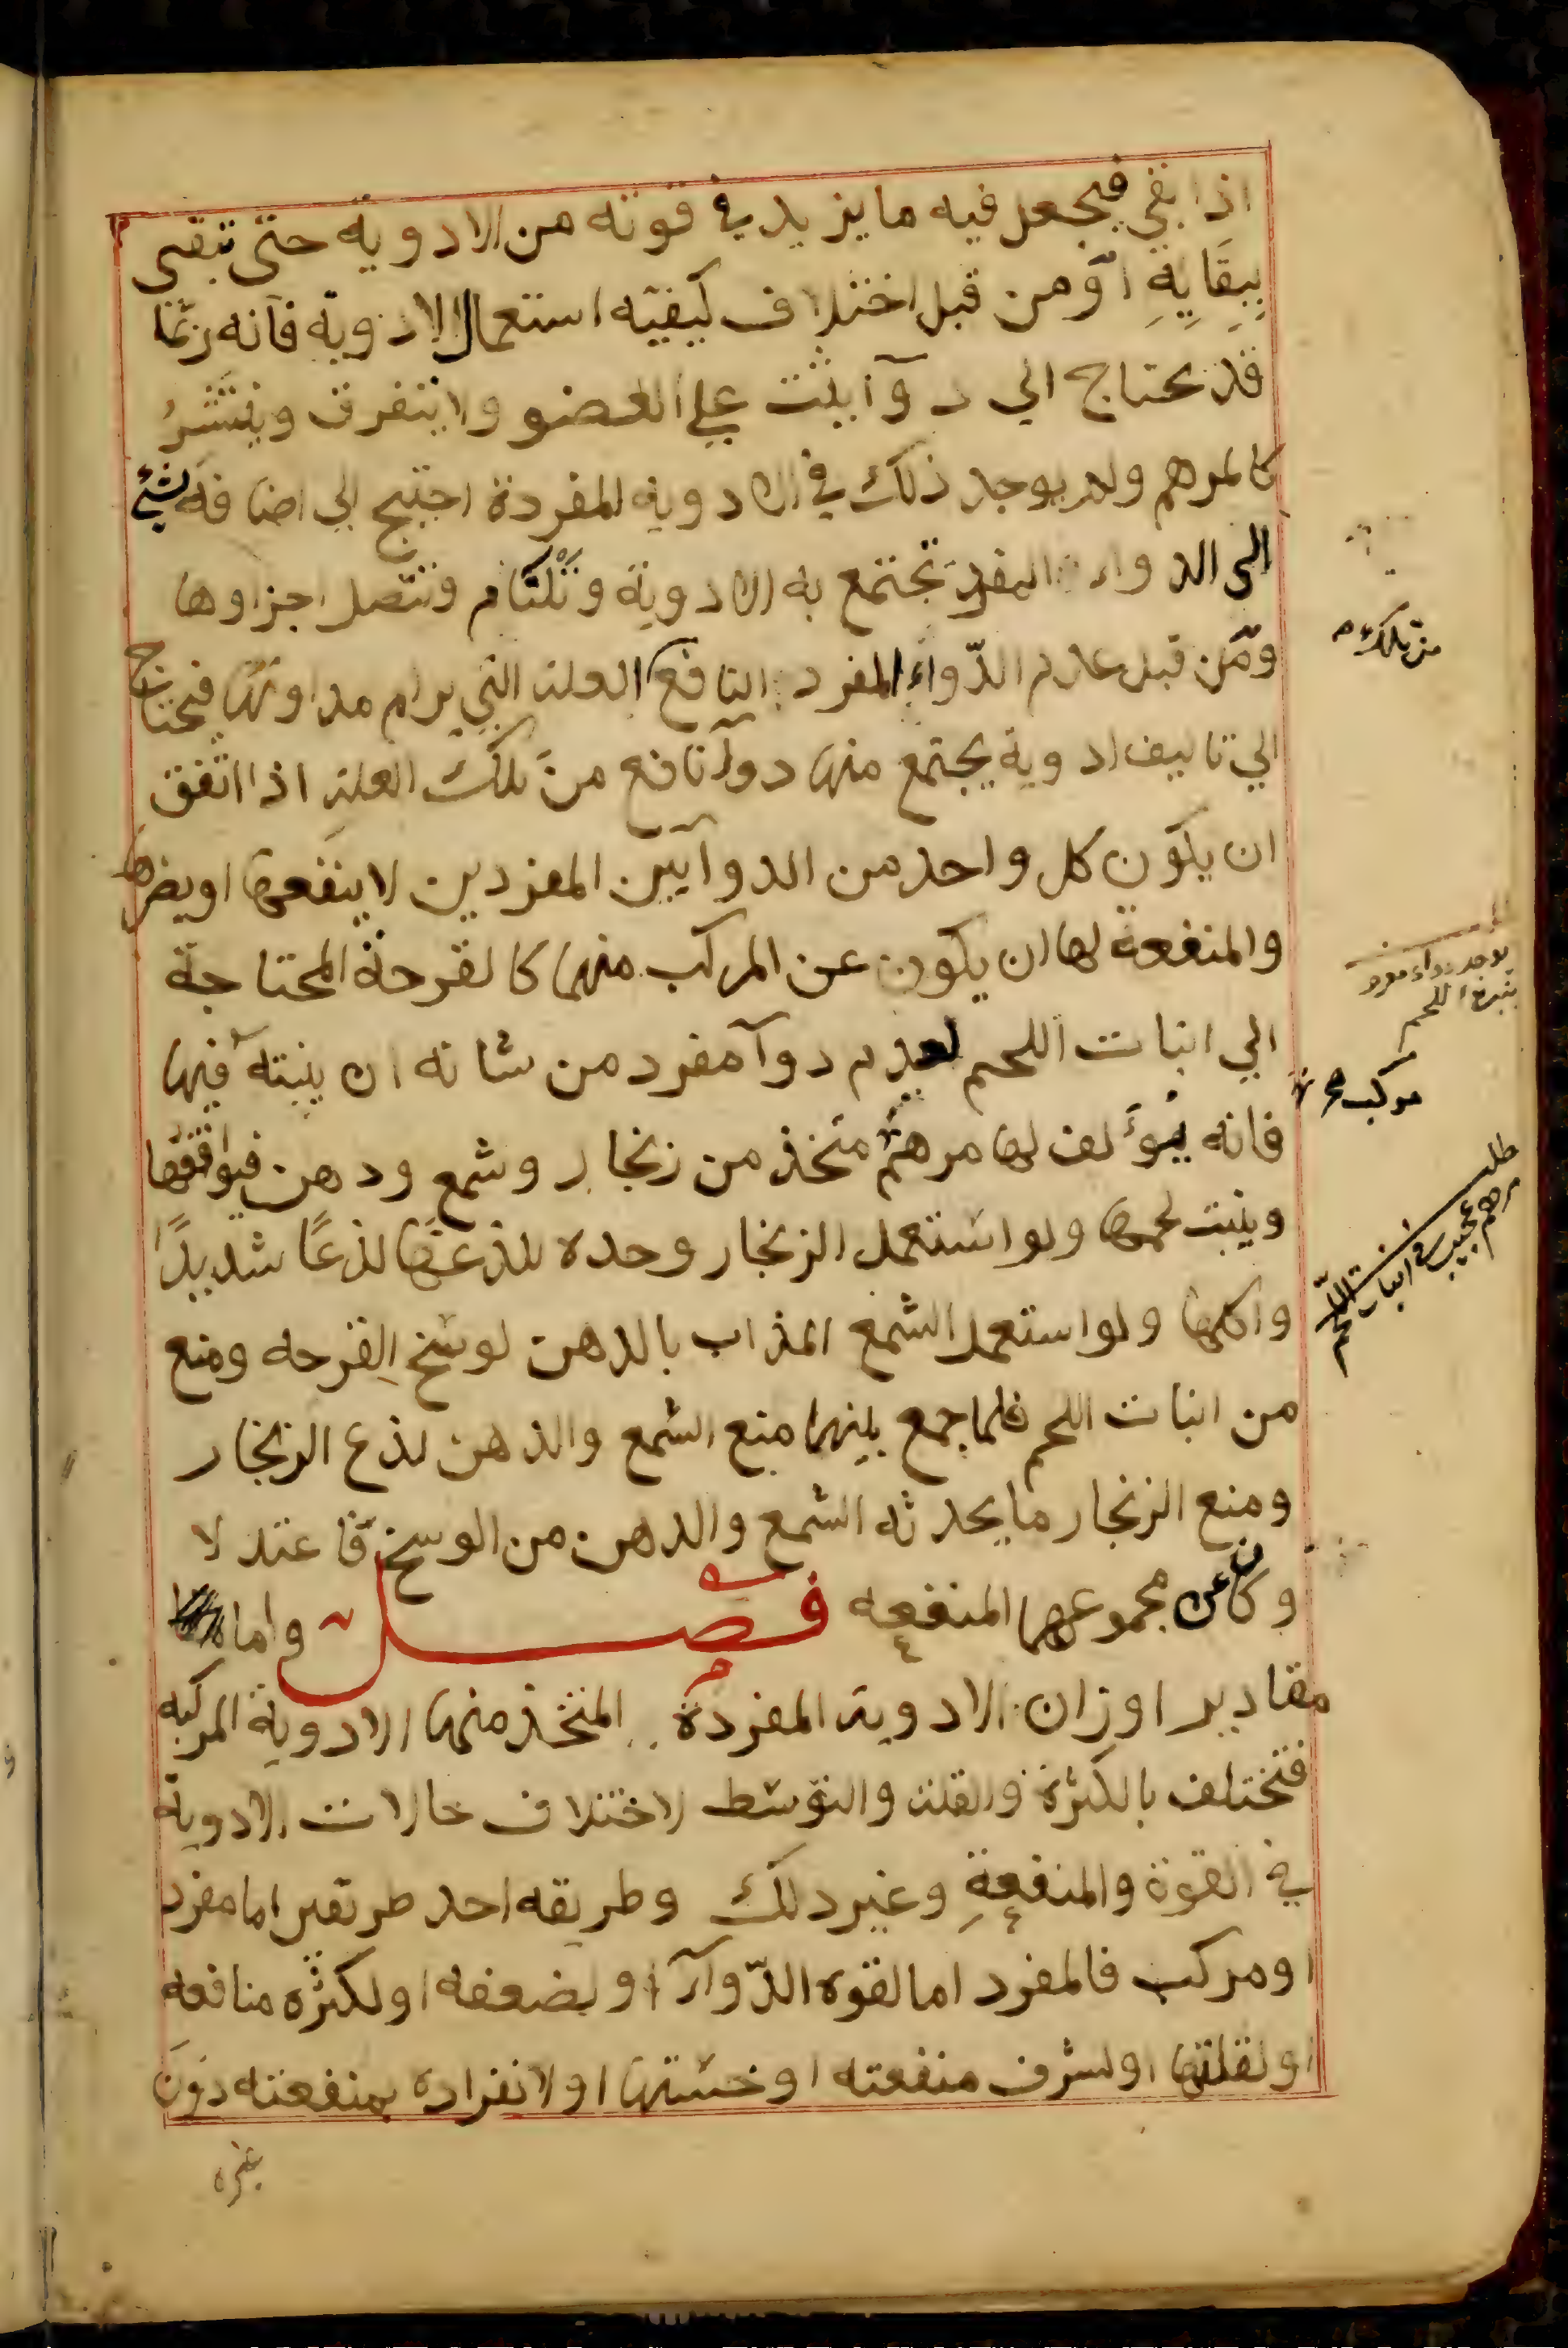 اذا بقي فيجعل فيه ما يزيد في قوته من الادوية حتى تبقى
ببقايه او من قبل اختلاف كيفيه استعمال الادوية فانه ربما
قد يحتاج الي دوآ يثبت علي العضو ولا يتفرق وينتشر
كالمرهم ولم يوجد ذلك في الادويه المفردة احتيج الي اضافة شئ
الى الدواء المفرد تجتمع به الادوية وتلتام وتتصل اجزاوها
ومن قبل عدم الدواء المفرد النافع العلة التي يرام مداوتها فيحتاج
الي تاليف ادوية يجتمع منها دوآ نافع من تلك العلة اذا اتفق
ان يكون كل واحد من الدوآيين المفردين لا ينفعها او يضرها
والمنفعة لها ان يكون عن المركب منهما كالقرحة المحتاجة
الي انبات اللحم لعدم دوآ مفرد من شانه ان ينبته فيها
فانه يؤلف لها مرهم متخذ من زنجار وشمع ودهن فيوافقها
وينبت لحمها ولو استعمل الزنجار وحده للذعها لذعًا شديدًا
واكلها ولو استعمل الشمع المذاب بالدهن لوسخ القرحه ومنع
من انبات اللحم فلما جمع بينهما منع الشمع والدهن لذع الزنجار
ومنع الزنجار ما يحدثه الشمع والدهن من الوسخ فاعتدلا
وكان عن مجموعهما المنفعه فصل واما
مقادير اوزان الادوية المفردة المتخذ منها الادوية المركبه
فتختلف بالكثرة والقلة والتوسط لاختلاف حالات الادوية
في القوة والمنفعة وغير ذلك وطريقه احد طريقين اما مفرد
او مركب فالمفرد اما لقوه الدوآء او لضعفه او لكثره منافعه
او لقلتها او لشرف منفعته او خستها او لانفراده بمنفعته دون
غيره
من تلك
يوجد دواء مفرد
ينبت اللحم
مركب
طلب
مرهم عجيب في انبات اللحم